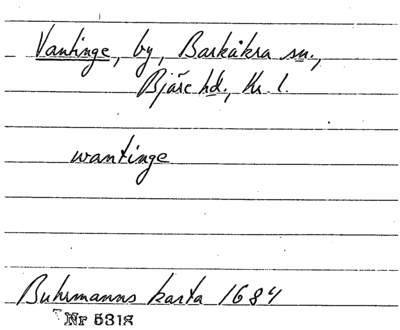 Vantinge, by, Barkåkra sn.,
Bjäre hd., Kr. l.
wantinge
Buhrmanns karta 1684
Nr 5318